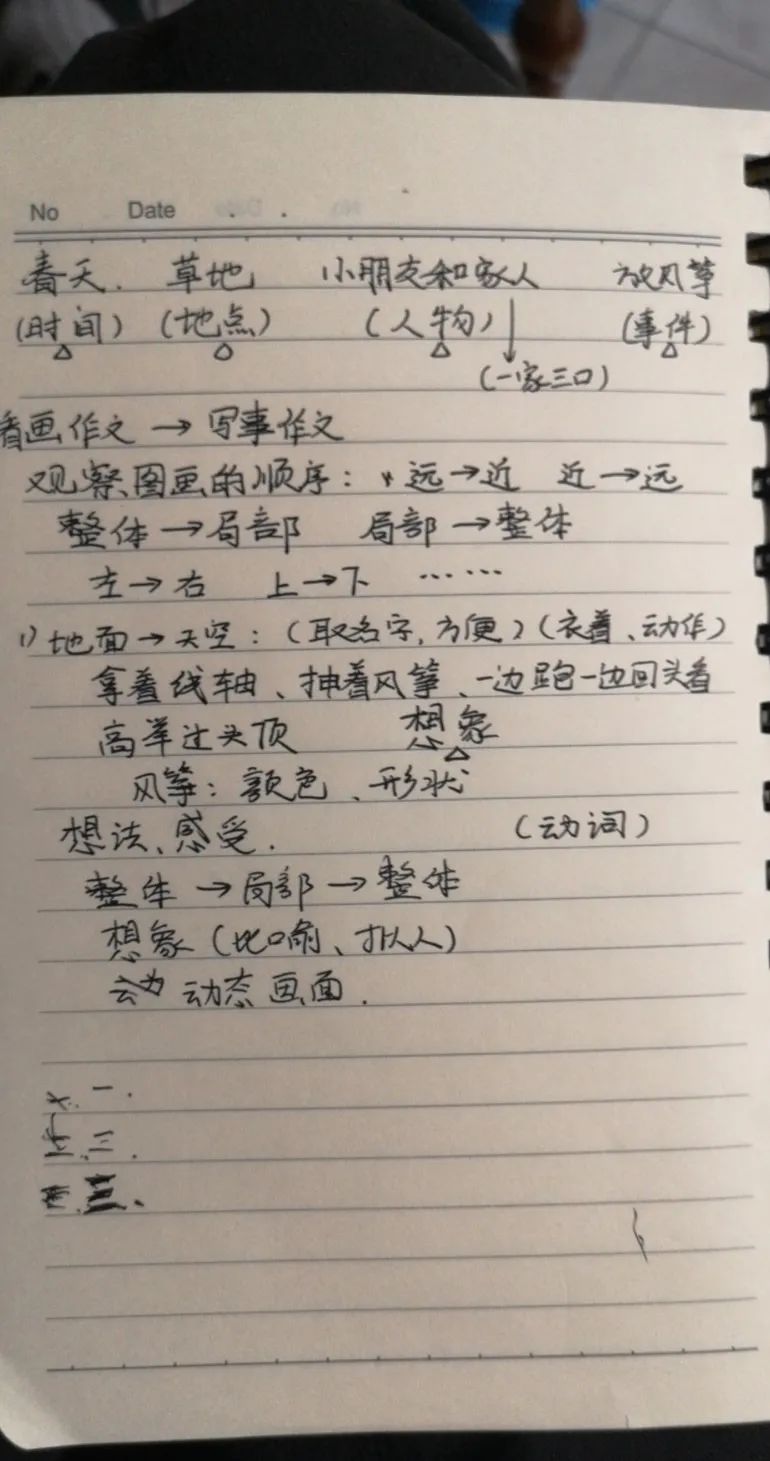 No Date
春天. 草地 小朋友和家人 放风筝
(时间) (地点) (人物) (事件)
(一家三口)
看画作文 → 写事作文
观察图画的顺序: 远→近 近→远
整体→局部 局部→整体
左→右 上→下 ……
1) 地面→天空: (取名字, 方便) (衣着、动作)
拿着线轴、抻着风筝、一边跑一边回头看
高举过头顶 想象
风筝: 颜色、形状
想法、感受. (动词)
整体→局部→整体
想象 (比喻、拟人)
动态画面.
一.
二.
三.